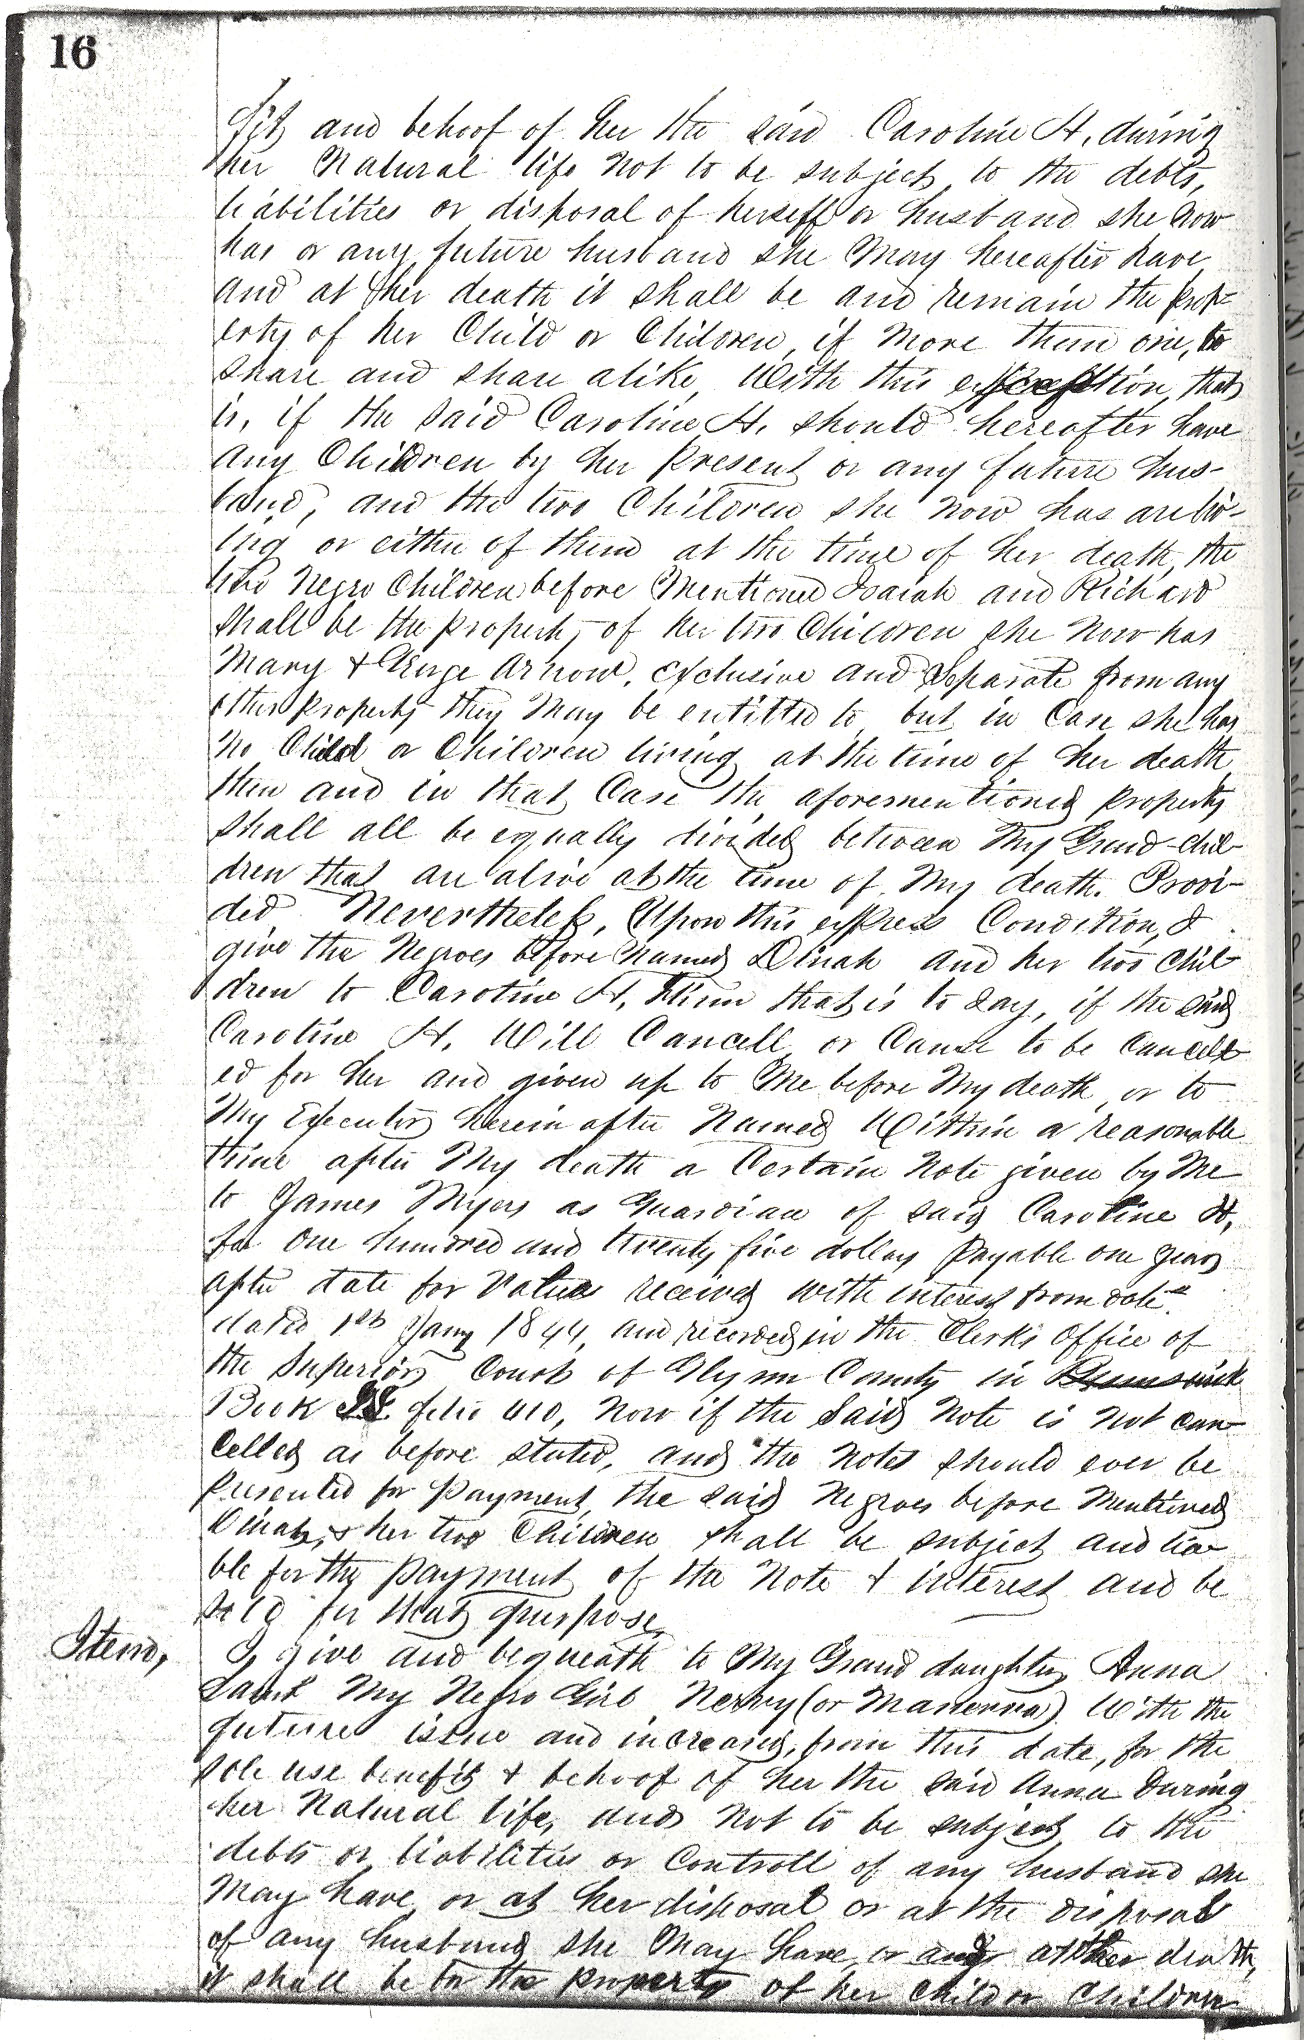 16
fit and behoof of her the said Caroline H, during
her Natural life Not to be subject to the debts,
liabilities or disposal of herself or husband she Now
has or any future husband she May hereafter have
and at her death it shall be and remain the prop=
erty of her Child or Children, if More than one, to
share and share alike, With this exception, that
is, if the said Caroline H, should hereafter have
any Children by her present or any future hus-
band, and the two Children she Now has are liv-
ing or either of them at the time of her death, the
two Negro Children before Mentioned Isaiah and Richard
shall be the property of her two Children she Now has
Mary & George Arnow, exclusive and Separate from any
other property they May be entitled to but in Case she has
No Child or Children living at the time of her death
then and in that Case the aforementioned property
shall all be equally divided between My Grand-Chil-
dren that are alive at the time of My death. Provi-
ded Nevertheless, Upon this express Condition, I
give the Negroes before Named Dinah and her two Chil-
dren to Caroline H, that is to Say, if the said
Caroline H, Will Cancell or Cause to be Cancell-
ed for her and given up to Me before My death, or to
My Executor herein after Named Within a reasonable
time after My death a Certain Note given by Me
to James Myers as Guardian of said Caroline H,
for One hundred and twenty five dollars payable one year
after date for Value received with interest from date"
dated 1st Jany 1844, and recorded in the Clerks Office of
the Superior Court of Glynn County in Brunswick
Book folio 410, Now if the Said Note is Not can-
celled as before stated, and the Note should ever be
presented for payment the said Negroes before Mentioned
Dinah, & her two Children shall be subject and lia-
ble for the payment of the Note & interest and be
sold for that purpose,
Item, I, give and bequeath to My Grand daughter Anna
My Negro Girl Nervy (or Manerva) With the
future issue and increase, from this date, for the
sole use benefit & behoof of her the said Anna During
her Natural life, and Not to be subject to the
debts or liabilities or Controll of any husband she
May have, or at her disposal or at the disposal
of any husband she May have, or and at her death,
it shall be the property of her Child or Children